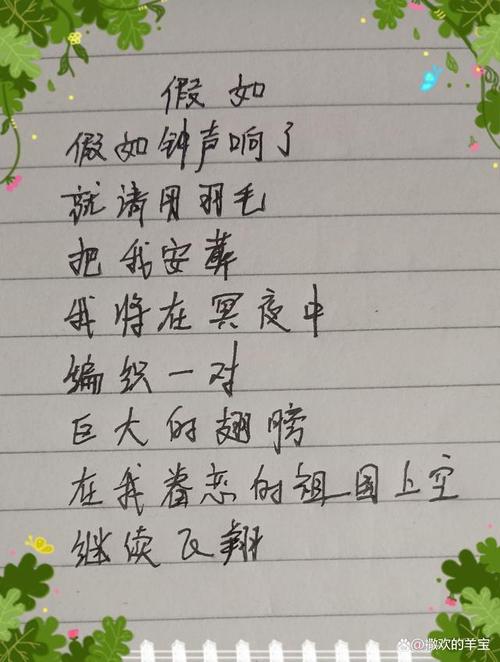 假如
假如钟声响了
就请用羽毛
把我安葬
我将在冥夜中
编织一对
巨大的翅膀
在我眷恋的祖国上空
继续飞翔
撒欢的羊宝